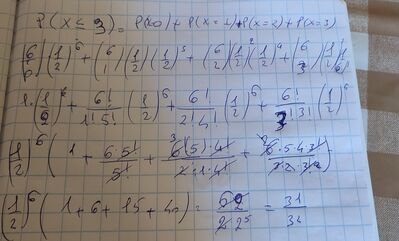 P(X ≤ 3) = P(X=0) + P(X=1) + P(X=2) + P(X=3)
(6 0)(1/2)^6 + (6 1)(1/2)(1/2)^5 + (6 2)(1/2)^2(1/2)^4 + (6 3)(1/2)
1·(1/2)^6 + 6!/1!5! (1/2)^6 + 6!/2!4! (1/2)^6 + 6!/3!3! (1/2)^6
(1/2)^6 (1 + 6·5!/5! + 6·(5)·4!/2·1·4! + 6·5·4·3!/3·2·3!)
(1/2)^6 (1 + 6 + 15 + 40) = 62/2·2^5 = 31/32